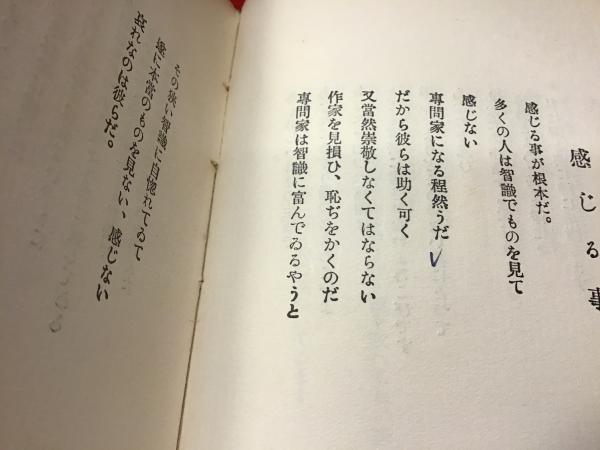 感じる事
感じる事が根本だ。
多くの人は智識でものを見て
感じない
專問家になる程然うだ
だから彼らは助く可く
又當然崇敬しなくてはならない
作家を見損ひ、恥ぢをかくのだ
專問家は智識に富んでゐるやうと
その狹い智識に自惚れてゐて
遂に本當のものを見ない、感じない
哀れなのは彼らだ。